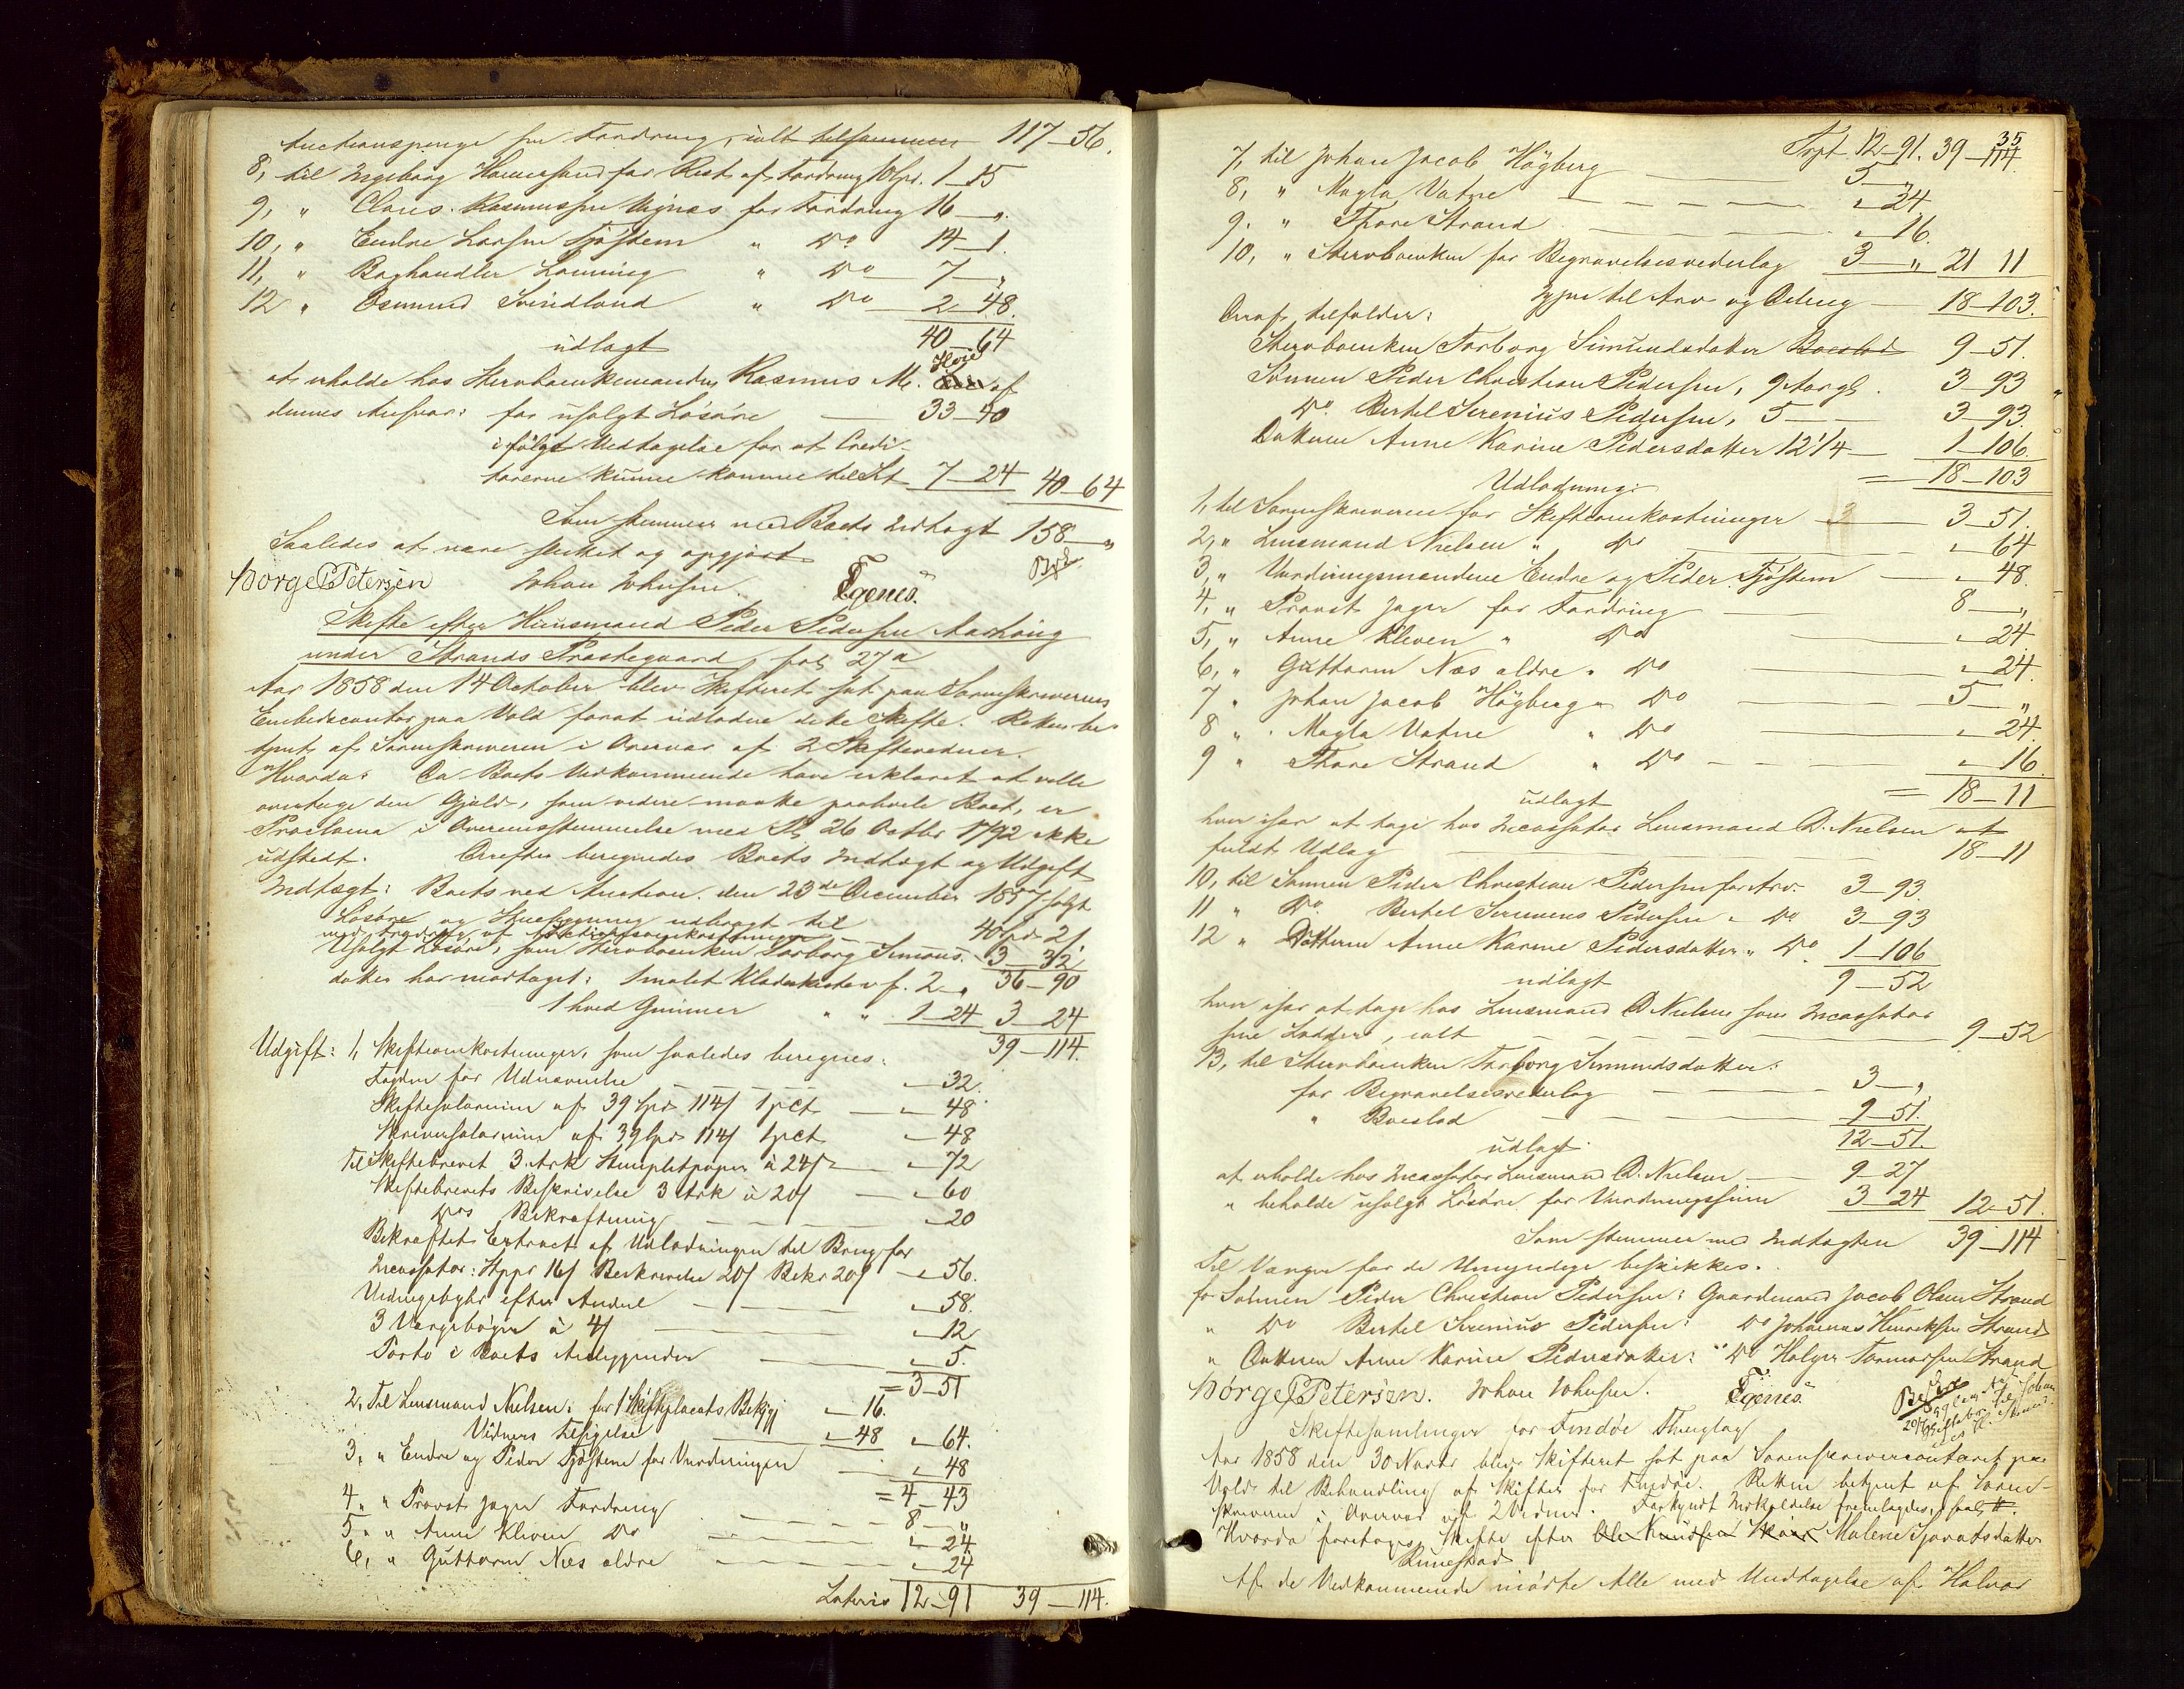 Auctionspenge for Fordring, ialt tilsammen 117_56.
8, til Ingeborg Hommersand for Rest af Fordring 10 Spd. 1_15
9, " Claus Rasmussen Vignæs for Fordring 16_".
10, " Endre Larsen Fjøsteen " Do 14_1.
11, " Boghandler Lønning " Do 7_"
12 " Osmund Svindland " Do 2_48.
udlagt 40_64
at erholde hos Stervboenkemanden Rasmus M. af
dennes Ansvar: for usolgt Løsøre 33_40
ifølge Vedtagelse for at Credi-
torerne kunne komme til Sit 7_24 40_64
Som stemmer med Boets Indtægt 158_"
Saaledes at være skiftet og opgjort
Børge P Petersen Johan Johnsen. Egenes.
Skifte efter Huusmand Peder Pedersen Aashaug
under Strands Præstegaard fol 27a
Aar 1858 den 14 October blev Skifteret sat paa Sorenskriverens
Embedscontor paa Vold forat udlodne dette Skifte. Retten be-
tjent af Sorenskriveren i Overvær af 2 Skiftevidner.
Hvorda: Da Boets Vedkommende have erklæret at ville
overtage den Gjæld, som videre maatte paahvile Boet, er
Proclama i Overensstemmelse med Pl 26 Octbr 1792 ikke
udstedt. Derefter beregnedes Boets Indtægt og Udgift
Indtægt: Boets ved Auction den 23de December 1857 solgt
Løsøre og Huusbygning udbragt til 40 Spd 2/.
med Fradrag af Auctionsomkostninger 3_32
Usolgt Løsøre, som Stervboenken Torborg Simons- 36_90
datter har modtaget: 1 malet Klædeskiste v f. 2_"
1 hvid Gimmer " " 1_24 3_24
39_114.
Udgift: 1, Skifteomkostninger, som saaledes beregnes:
Fogden for Udnævnelse "_32.
Skiftesalarium af 39 Spd 114/ 1 pCt "_48
Skriversalarium af 39 Spd 114/ 1 pct "_48
Til Skiftebrevet 3 Ark Stemplet papir à 24/ "_72
Skiftebrevets Beskrivelse 3 Ark à 20/ "_60
Dos Bekræftning "_20
Bekræftet Extract af Udlodningen til Brug for
Incassator: Stppr 16/ Beskrivelse 20/ Bekr 20/ "_56.
Udregsbyhr efter Andeel "_58.
3 Værgebøger à 4/ "_12
Porto i Boets Anliggender "_5.
=3_51
2, Til Lensmand Nielsen: for 1 Skifteplacats Bekjgj "_16.
Vidners Tilsigelse "_48 "_64.
3, " Endre og Peder Fjøsteen for Vurderingen "_48
=4_43
4, " Provst Jager Fordring 8_"
5, " Anne Kleven Do "_24
6, " Guttorm Næs ældre "_24
Lateris 12_91 39_114.
35
Trpt 12_91. 39_114.
7, til Johan Jacob Høgberg 5_"
8, " Magla Vatne "_24
9, " Thore Strand "_16.
10, " Stervboenken for Begravelsesvederlag 3_" 21 11
Igjen til Arv og Deling 18_103.
Deraf tilfalder:
Stervboenken Torborg Simundsdatter Boeslod 9_51.
Sønnen Peder Christian Pedersen, 9 Aar gl. 3_93
Do. Bertel Serenius Pedersen, 5 3_93.
Datteren Anne Karine Pedersdatter 12 1/4 1_106
= 18_103
Udlodning:
1, til Sorenskriveren for Skifteomkostninger 3_51.
2, " Lensmand Nielsen " Do "_64
3, " Vurderingsmændene Endre og Peder Fjøsteen "_48.
4, " Provst Jager for Fordring 8_"
5, " Anne Kleven " Do "_24
6, " Guttorm Næs ældre " Do "_24.
7 " Johan Jacob Høgberg " Do 5_"
8 " Magla Vatne " Do "_24
9 " Thore Strand " Do "_16
udlagt = 18_11
hver især at tage hos Incassator Lensmand D. Nielsen at
fuldt Udlæg 18_11
10, til Sønnen Peder Christian Pedersen for Arv 3_93.
11 " Do. Bertel Serenius Pedersen " Do 3_93
12 " Datteren Anne Karine Pedersdatter " Do 1_106
udlagt 9_52
hver især at tage hos Lensmand D Nielsen som Incassator
sine Lodder, ialt 9_52
13, til Stervboenken Torborg Simundsdatter:
for Begravelsesvederlag 3_"
" Boeslod 9_51.
udlagt 12_51.
at erholde hos Incassator Lensmand D. Nielsen 9_27
" beholde usolgt Løsøre for Vurderingssum 3_24 12_51.
Som stemmer med Indtægten 39_114
Til Værger for de Umyndige beskikkes.
for Sønnen Peder Christian Pedersen: Gaardmand Jacob Olsen Strand
" Do Bertel Serenius Pedersen: Do Johannes Henriksen Strand
" Datteren Anne Karine Pedersdatter: " Do Holger Tormodsen Strand
Børge P Petersen. Johan Johnsen. Egenes.
Skiftesamlinger for Findøe Thinglag
Aar 1858 den 30 Novbr blev Skifteret sat paa Sorenskrivercontoret paa
Vold til Behandling af Skifter for Findøe. Retten betjent af Soren-
skriveren i Overvær af 2 Vidner. Forkyndt Indkaldelse fremlagdes, saal. #.
Hvorda foretages Skifte efter Ole Knudsen Malene Tjøratsdatter
Rimestad
Af de Vedkommende mødte Alle med Undtagelse af Halvor